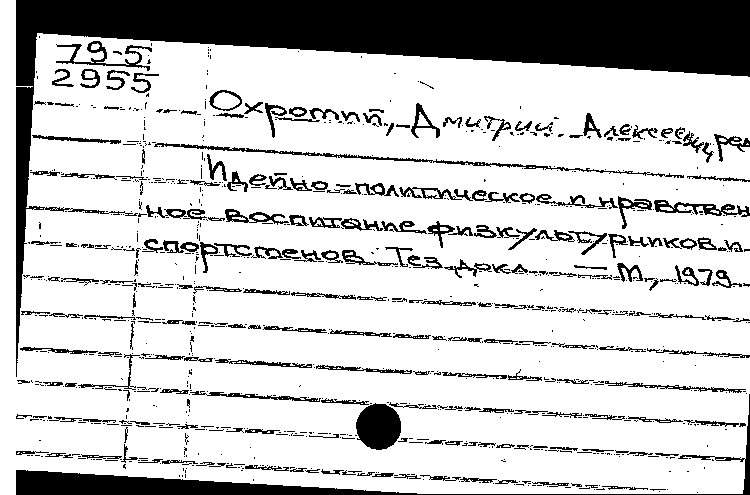 79-5
2955
Охротий, Дмитрий Алексеевич, ред
Идейно-политическое и нравствен
ное воспитание физкультурников и
спортсменов. Тез. докл. — М., 1979